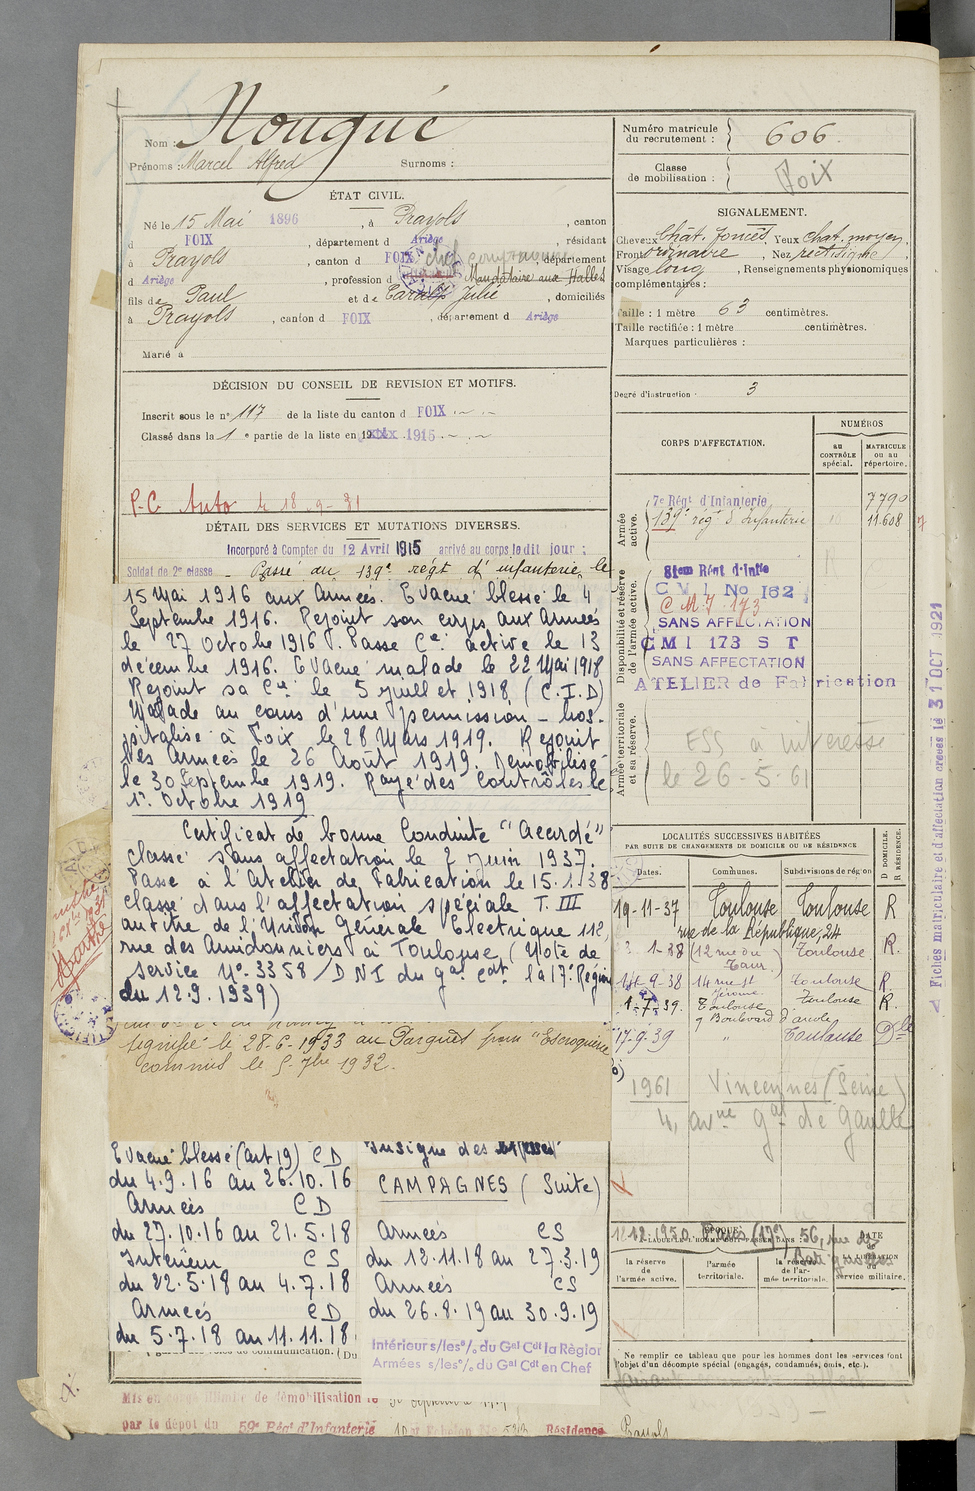 Nom : Nougué
Prénoms : Marcel Alfred Surnoms :
ÉTAT CIVIL.
Né le 15 Mai 1896, à Prayols, canton
d FOIX, département d Ariège, résidant
à Prayols, canton d FOIX, département
d Ariège, profession d Mandataire aux Halles
fils de Paul et de Julie, domiciliés
à Prayols, canton d FOIX, département d Ariège
Marié à
DÉCISION DU CONSEIL DE REVISION ET MOTIFS.
Inscrit sous le n° 117 de la liste du canton d FOIX
Classé dans la 1e partie de la liste en 1915
P.C. Auto le 18-9-31
DÉTAIL DES SERVICES ET MUTATIONS DIVERSES.
Incorporé à Compter du 12 Avril 1915 arrivé au corps le dit jour ;
Soldat de 2e classe - Passé au 139e régt d'infanterie le
15 Mai 1916 aux Armées. Evacué blessé le 4
Septembre 1916. Rejoint son corps aux Armées
le 27 Octobre 1916. Passé Cie active le 13
décembre 1916. Evacué malade le 22 Mai 1918
Rejoint sa Cie le 5 juillet 1918 (C.I.D)
Malade au cours d'une permission - hos-
pitalisé à Foix le 28 Mars 1919. Rejoint
les Armées le 26 Août 1919. Démobilisé
le 30 Septembre 1919. Rayé des Contrôles le
1er Octobre 1919
Certificat de bonne Conduite "Accordé"
Classé sans affectation le 2 Juin 1937.
Passé à l'Atelier de Fabrication le 15.1.38
Classé dans l'affectation spéciale T. III
au titre de l'Union Générale Electrique 112,
rue des Amidonniers à Toulouse (Note de
Service N° 3358/DNI du Gal Cdt la 17e Région
du 12.9.1939)
signifié le 28-6-1933 au Parquet pour "Escroquerie
commis le 5-7bre 1932.
Evacué blessé (art 19) CD
du 4.9.16 au 26.10.16
Armées CD
du 27.10.16 au 21.5.18
Intérieur CS
du 22.5.18 au 4.7.18
Armées CD
du 5.7.18 au 11.11.18
Insigne des blessés
CAMPAGNES (Suite)
Armées CS
du 12.11.18 au 27.3.19
Armées CS
du 26.8.19 au 30.9.19
Intérieur s/les °/. du Gal Cdt la Région
Armées s/les °/. du Gal Cdt en Chef
Mis en congé illimité de démobilisation le
par le dépôt du 59e Régt d'Infanterie
Résidence Prayols
Numéro matricule du recrutement : 606
Classe de mobilisation : Foix
SIGNALEMENT.
Cheveux Chât. foncés, Yeux chat. moyen,
Front ordinaire, Nez rectiligne,
Visage long, Renseignements physionomiques
complémentaires :
Taille : 1 mètre 63 centimètres.
Taille rectifiée : 1 mètre centimètres.
Marques particulières :
Degré d'instruction 3
CORPS D'AFFECTATION.
NUMÉROS
au CONTRÔLE spécial.
MATRICULE ou au répertoire.
Armée active.
7e Régt d'Infanterie 7790
139e régt d'Infanterie 11.608
Disponibilité et réserve de l'armée active.
81em Régt d'Infie
C V I No 162
C M I 173
SANS AFFECTATION
CMI 173 S T
SANS AFFECTATION
ATELIER de Fabrication
Armée territoriale et sa réserve.
ESS à intéressé
le 26-5-61
LOCALITÉS SUCCESSIVES HABITÉES
PAR SUITE DE CHANGEMENTS DE DOMICILE OU DE RÉSIDENCE
Dates. Communes. Subdivisions de région D DOMICILE. R RÉSIDENCE.
19-11-37 Toulouse Toulouse R
rue de la République, 24
1-38 (12 rue du Taur) Toulouse R.
14-9-38 14 rue St Jérome Toulouse R.
1-7-39. Toulouse Toulouse R.
9 Boulevard d'arcole
17-9-39 " Toulouse Dle
1961 Vincennes (Seine)
4, avne Gal de Gaulle
12.12.1950 Paris (17e) 56, rue des Batignolles
la réserve de l'armée active.
l'armée territoriale.
la réserve de l'armée territoriale.
DATE de la LIBÉRATION du service militaire.
Ne remplir ce tableau que pour les hommes dont les services font
l'objet d'un décompte spécial (engagés, condamnés, omis, etc.).
Fiches matriculaire et d'affectation créées le 31 OCT 1921